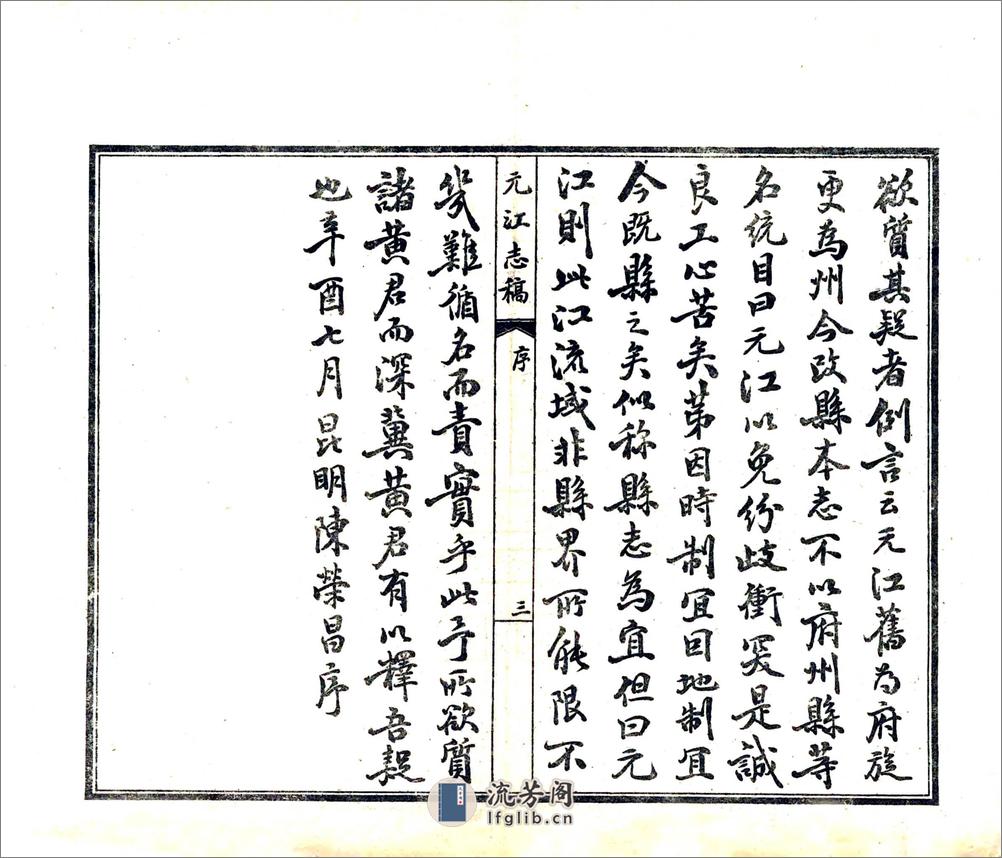 欲質其疑者例言云元江舊為府旋
更為州今改縣本志不以府州縣等
名統目曰元江以免紛歧衝突是誠
良工心苦矣苐因時制宜因地制宜
今既縣之矣似称縣志為宜但曰元
江則此江流域非縣界所能限不
元江志稿
序
三
幾難循名而責實乎此予所欲質
諸黄君而深冀黄君有以釋吾疑
也辛酉七月昆明陳榮昌序
流芳阁
lfglib.cn